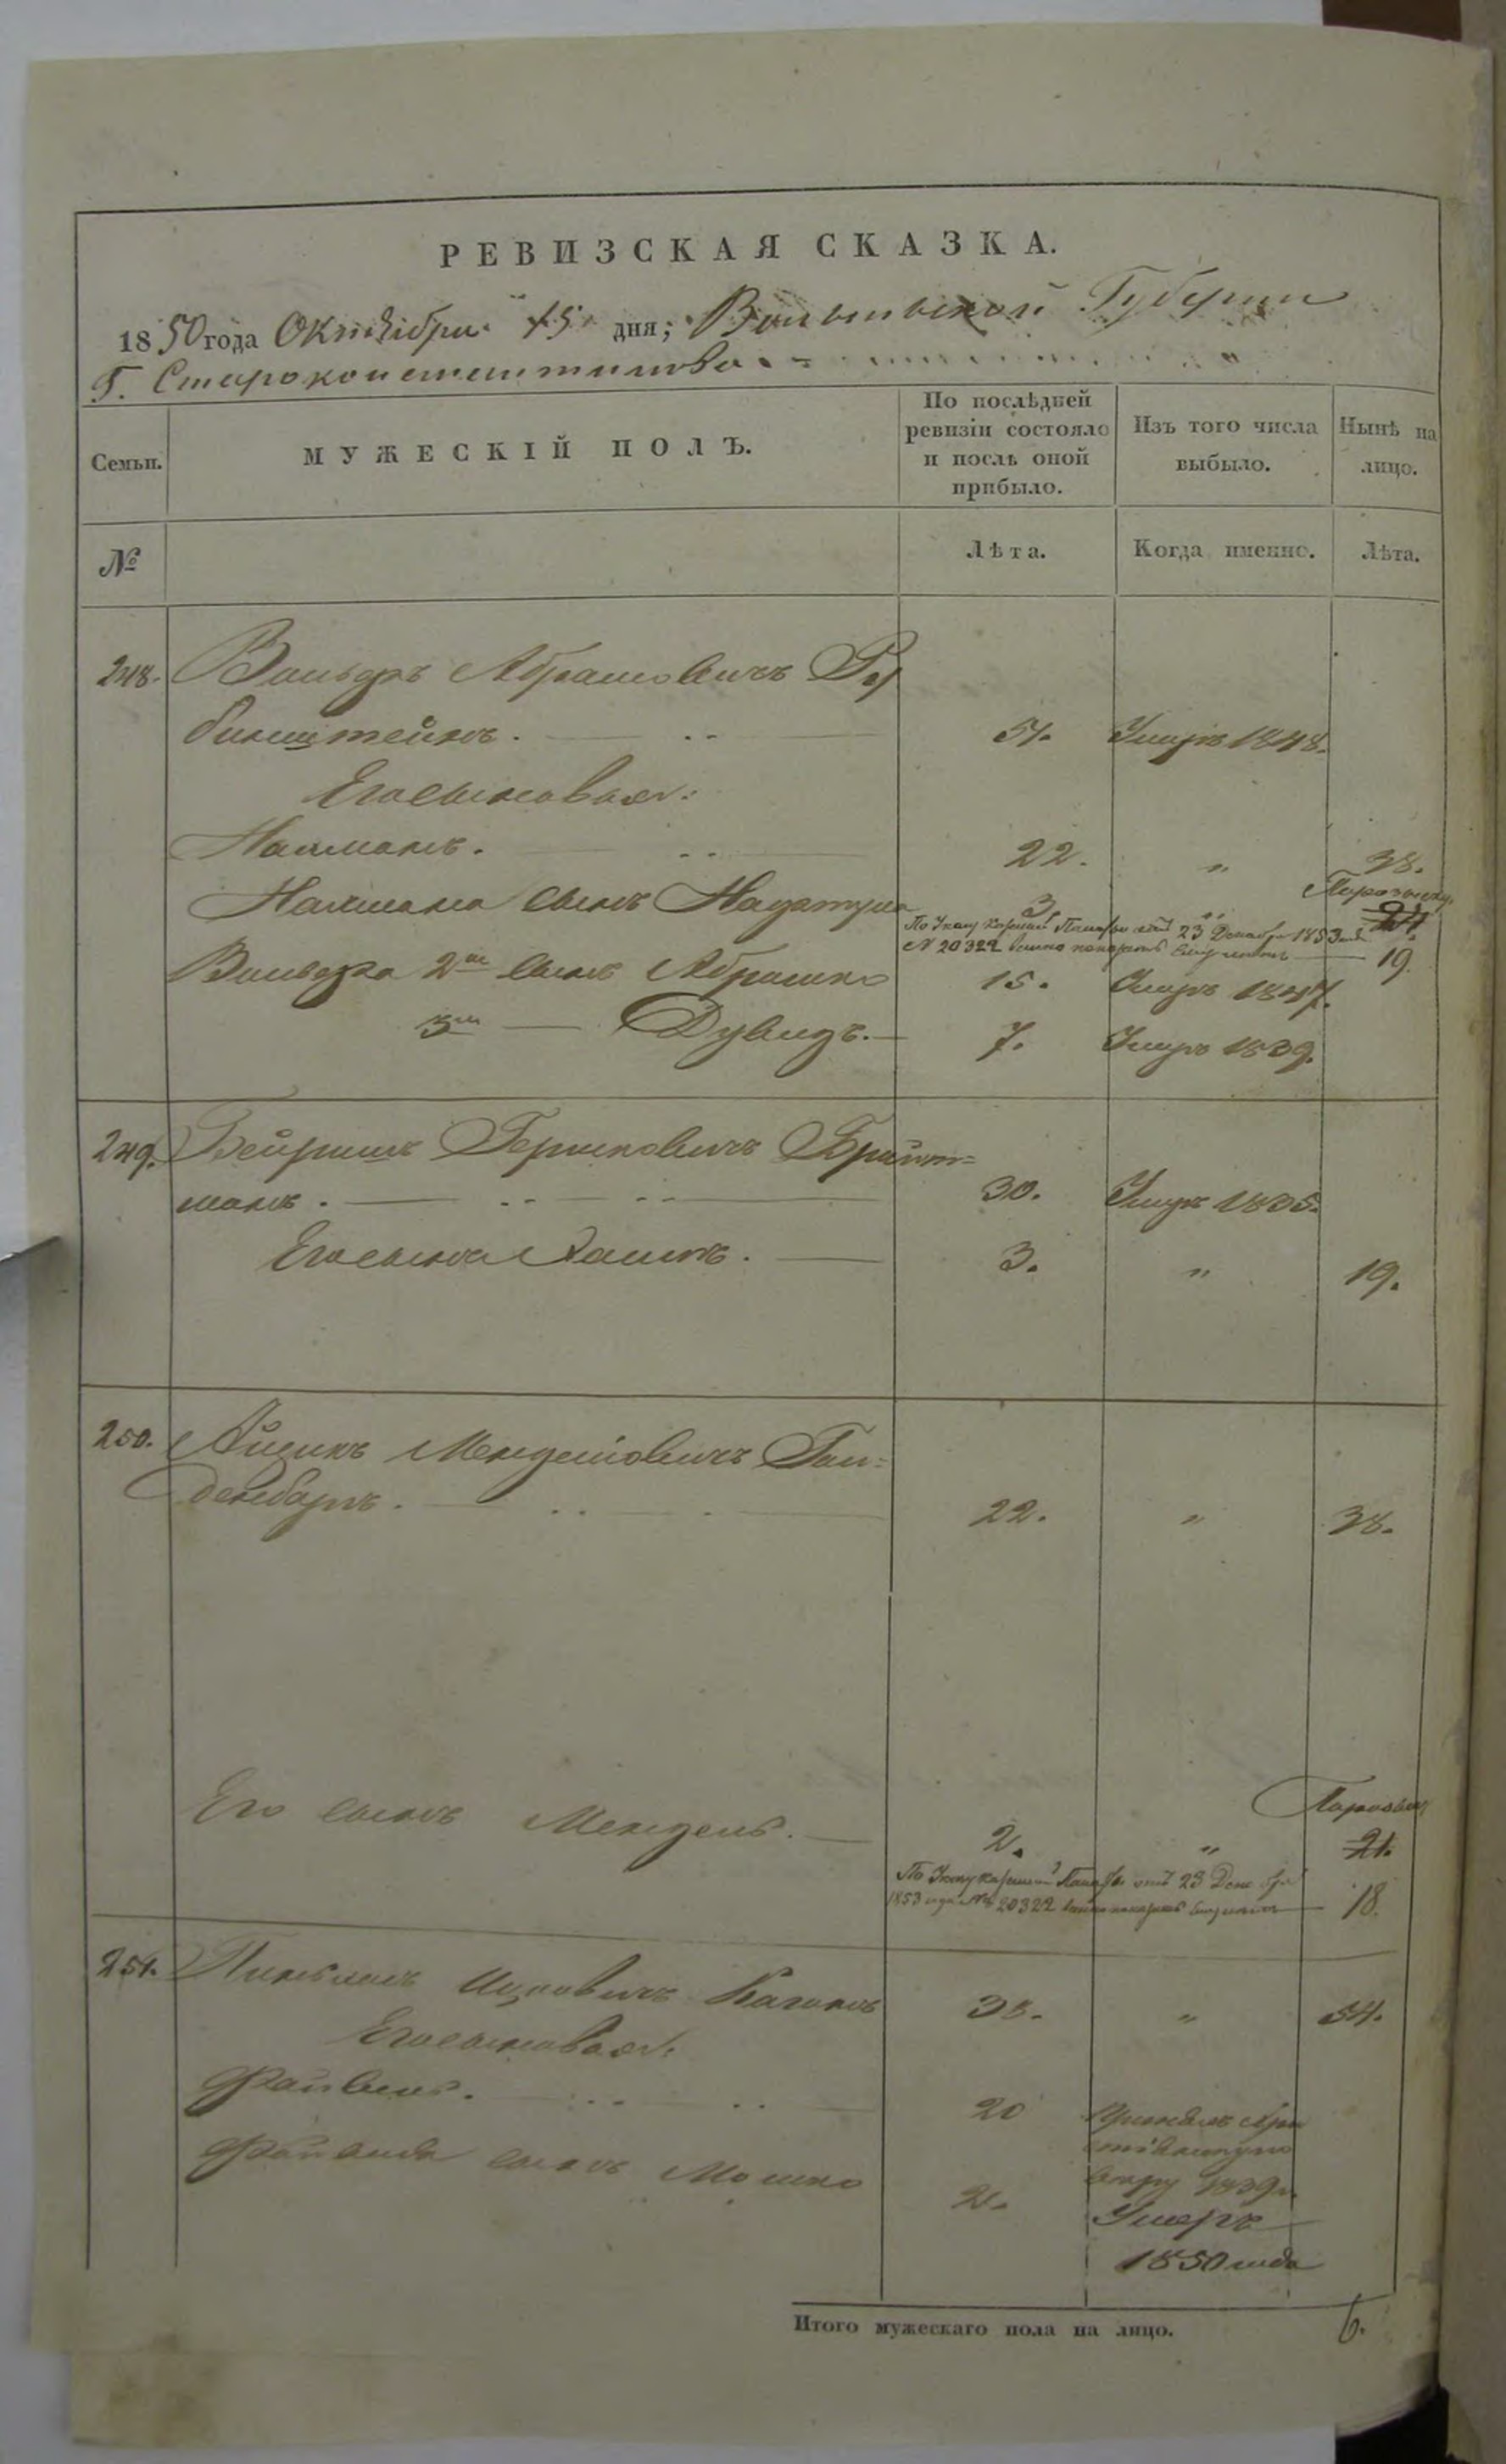 РЕВИЗСКАЯ СКАЗКА.
1850 года Октября 15 дня; Волынской Губернии
Г. Староконстантинова
Семьи.
МУЖЕСКІЙ ПОЛЪ.
По послѣдней ревизіи состояло и послѣ оной прибыло.
Изъ того числа выбыло.
Нынѣ на лицо.
№
Лѣта.
Когда именно.
Лѣта.
248. Вольфъ Абрамовичъ Ру
бинштейнъ. 51. Умеръ 1848.
Его сыновья:
Нахманъ. 22. " 38.
Нахмана сынъ 3. " 21.
По Указу Казенной Палаты отъ 23 Декабря 1853 года
N 20322 19.
Вольфа 2й сынъ Абрамко 15. Умеръ 1847.
3й — Дувидъ. 7. Умеръ 1839.
249. Бейришъ Гершковичъ
манъ. 30. Умеръ 1835.
Его сынъ Хаимъ. 3. " 19.
250. Айзикъ Менделiовичъ Гол=
денбаръ. 22. " 38.
Его сынъ Мендель. 2. " 21.
По Указу Казенной Палаты отъ 23 Декабря
1853 года № 20322 18.
251. Ицковичъ Каганъ 38. " 54.
Его сыновья:
Файвель. 20 Принялъ хри
стіанскую
вѣру 1839 г.
Файвеля сынъ Мошко 2. Умеръ
1850 года
Итого мужескаго пола на лицо. 6.